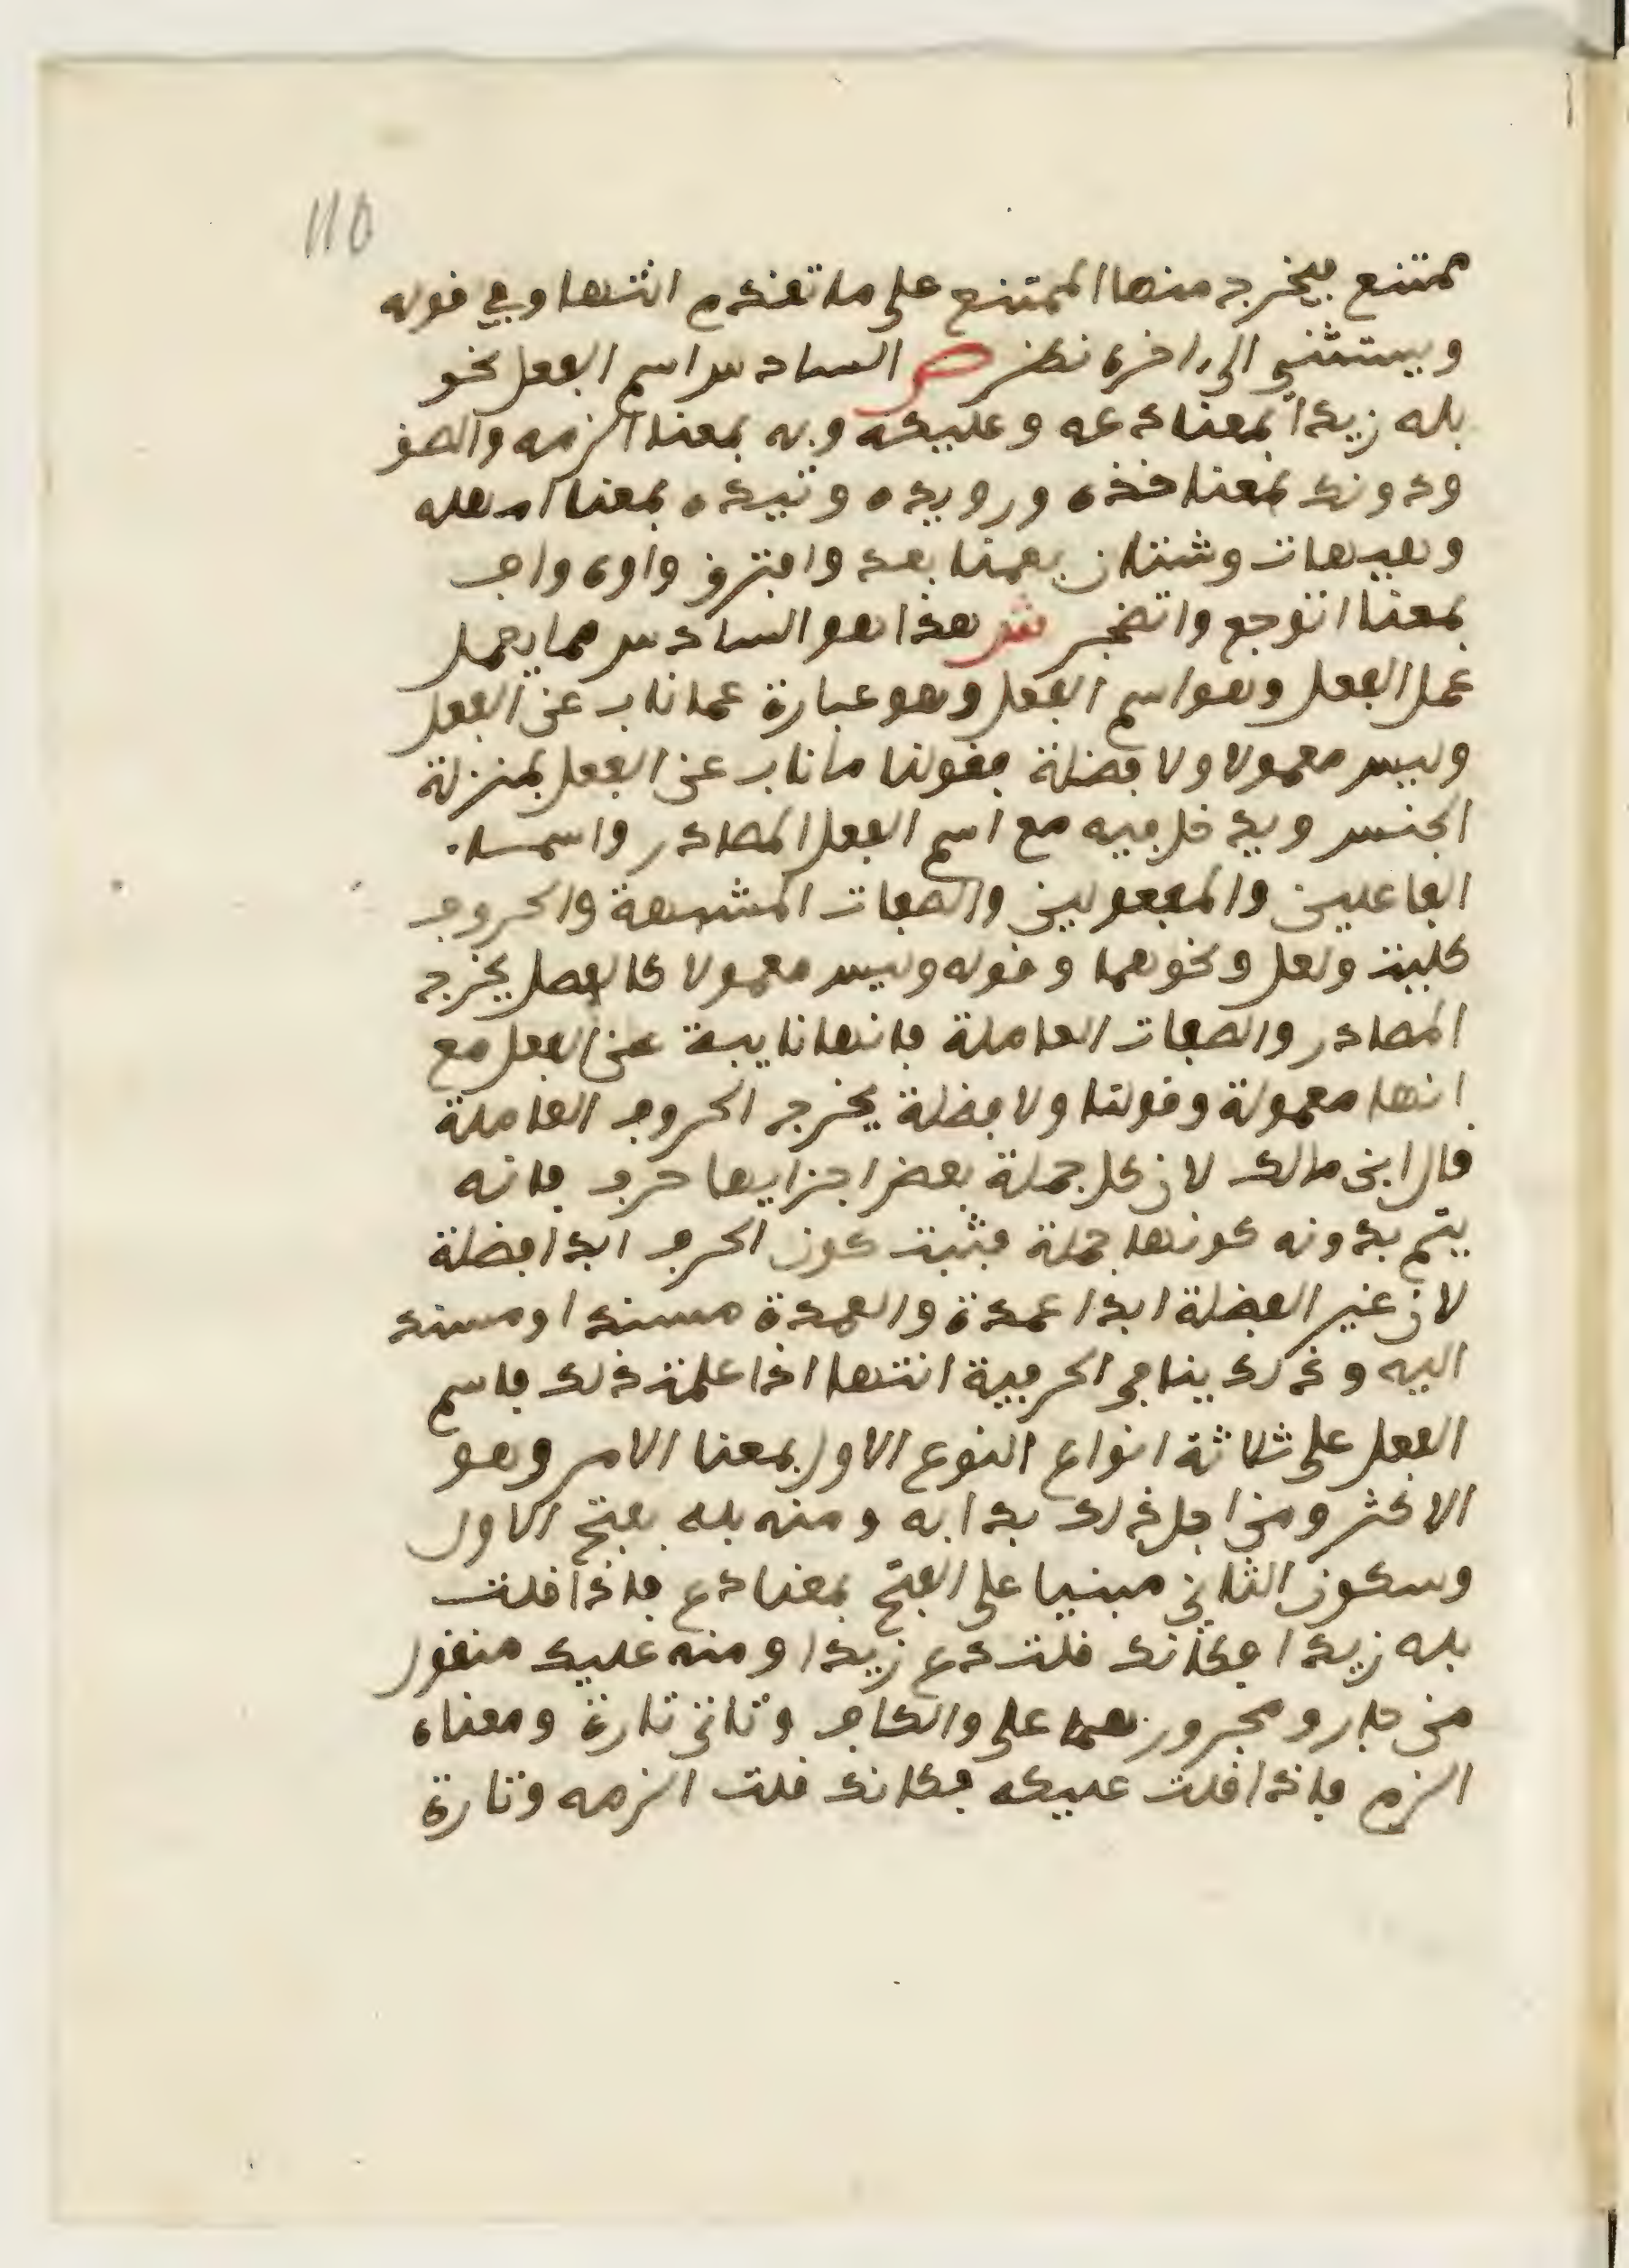 110
ممتنع فيخرج منها الممتنع على ما تقدم انتها وفي قوله
ويستثنى الى اخره نظر ص السادس اسم الفعل نحو
بله زيدا بمعنا دعه وعليكه وبه بمعنا الزمه والصق
ودونك بمعنا خذه ورويده وتيده بمعنا امهله
وهيهات وشتان بمعنا بعد وافترق واوه واف
بمعنا اتوجع واتضجر ش هذا هو السادس مما يعمل
عمل الفعل وهو اسم الفعل وهو عبارة عما ناب عن الفعل
وليس معمولا ولا فضلة فقولنا ما ناب عن الفعل بمنزلة
الجنس ويدخل فيه مع اسم الفعل المصادر واسماء
الفاعلين والمفعولين والصفات المشبهة والحروف
كليت ولعل ونحوهما وقوله وليس معمولا كالفصل يخرج
المصادر والصفات العاملة فانها نايبة عن الفعل مع
انها معمولة وقولنا ولا فضلة يخرج الحروف العاملة
قال ابن مالك لان كل جملة بعض اجزايها حرف فانه
يتم بدونه كونها جملة فثبت كون الحرف ابدا فضلة
لان غير الفضلة ابدا عمدة والعمدة مسندا ومسند
اليه وذلك ينافي الحرفية انتها اذا علمت ذلك فاسم
الفعل على ثلاثة انواع النوع الاول بمعنا الامر وهو
الاكثر ومن اجل ذلك بدا به ومنه بله بفتح الاول
وسكون الثاني مبنيا على الفتح بمعنا دع فاذا قلت
بله زيدا فكانك قلت دع زيدا ومنه عليك منقول
من جار ومجرور هما على والكاف وتاتي تارة ومعناه
الزم فاذا قلت عليكه فكانك قلت الزمه وتارة